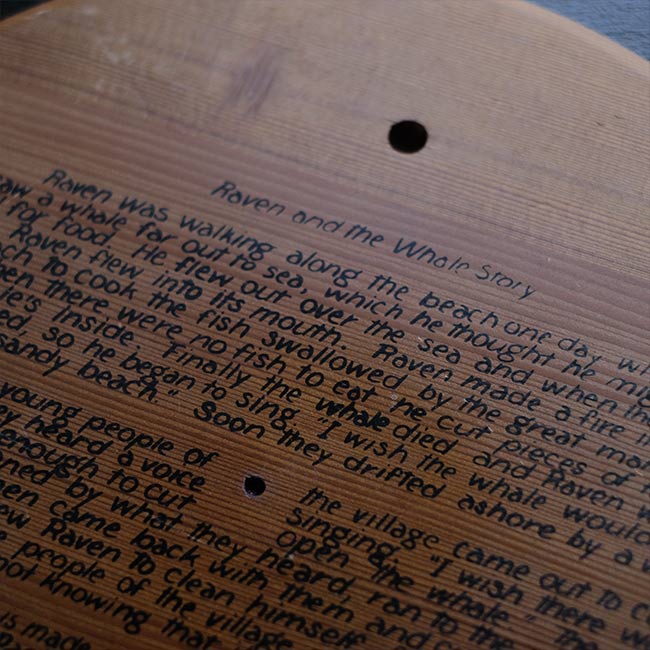 Raven and the Whale Story
Raven was walking along the beach one day wh
saw a whale far out to sea, which he thought he mig
for food. He flew out over the sea and when the
Raven flew into its mouth. Raven made a fire in
ch to cook the fish swallowed by the great mam
en there were no fish to eat he cut pieces of
le's inside. Finally the whale died and Raven w
ed, so he began to sing, "I wish the whale would
sandy beach." Soon they drifted ashore by a v
young people of the village came out to c
ey heard a voice singing, "I wish there w
enough to cut open the whale." The
ned by what they heard, ran to the
en came back with them and c
ew Raven to clean himself
e people of the village
not knowing that
is made